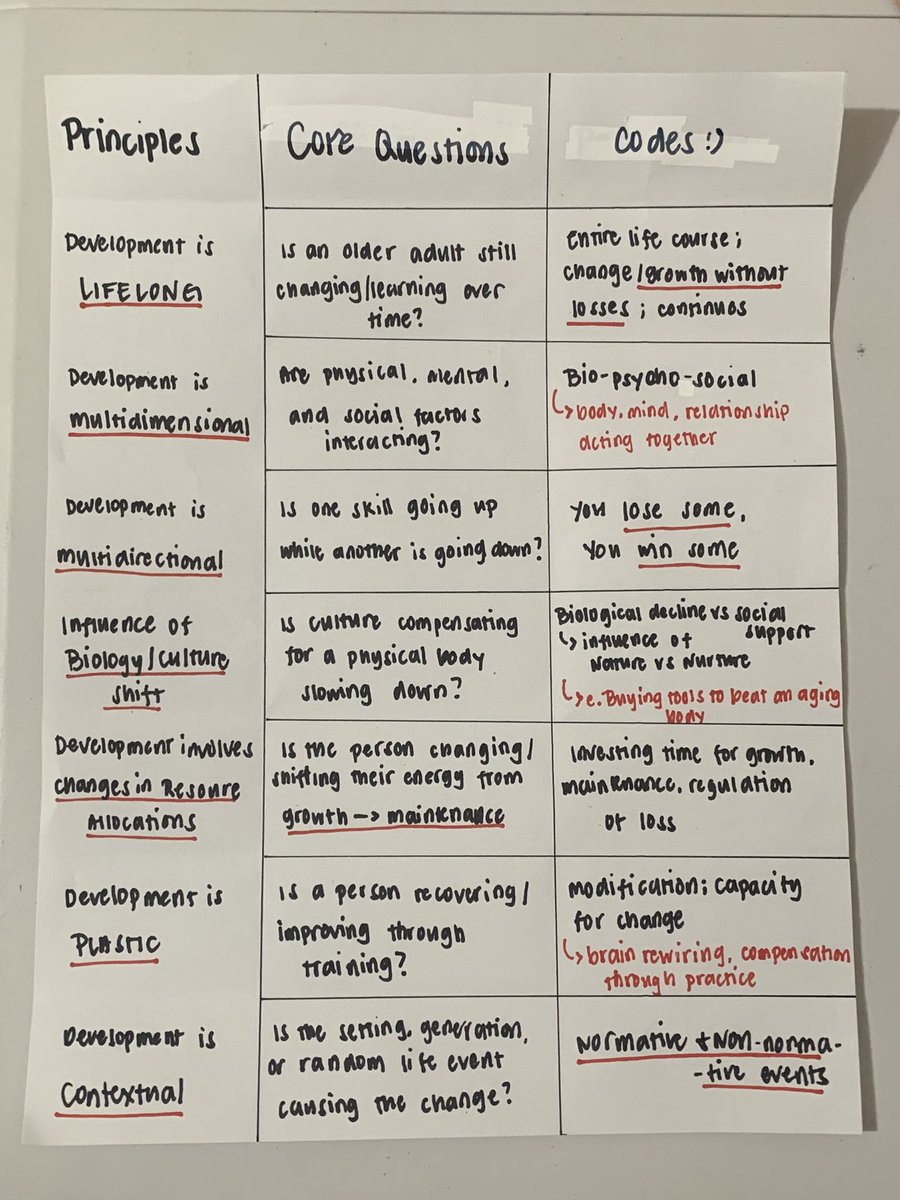 Principles
Core Questions
Codes :)
Development is
LIFELONG
Is an older adult still
changing/learning over
time?
Entire life course;
change/growth without
losses; continuos
Development is
multidimensional
Are physical, mental,
and social factors
interacting?
Bio-psycho-social
↳ body, mind, relationship
acting together
Development is
multidirectional
Is one skill going up
while another is going down?
You lose some,
you win some
Influence of
Biology/culture
shift
Is culture compensating
for a physical body
slowing down?
Biological decline vs social
support
↳ influence of
Nature vs Nurture
↳ e. Buying tools to beat an aging
body
Development involves
changes in Resoure
Allocations
Is the person changing/
shifting their energy from
growth -> maintenance
Investing time for growth,
maintenance, regulation
of loss
Development is
PLASTIC
Is a person recovering/
improving through
training?
modification; capacity
for change
↳ brain rewiring, compensation
through practice
Development is
Contextual
Is the setting, generation,
or random life event
causing the change?
Normative + Non-norma-
-tive events